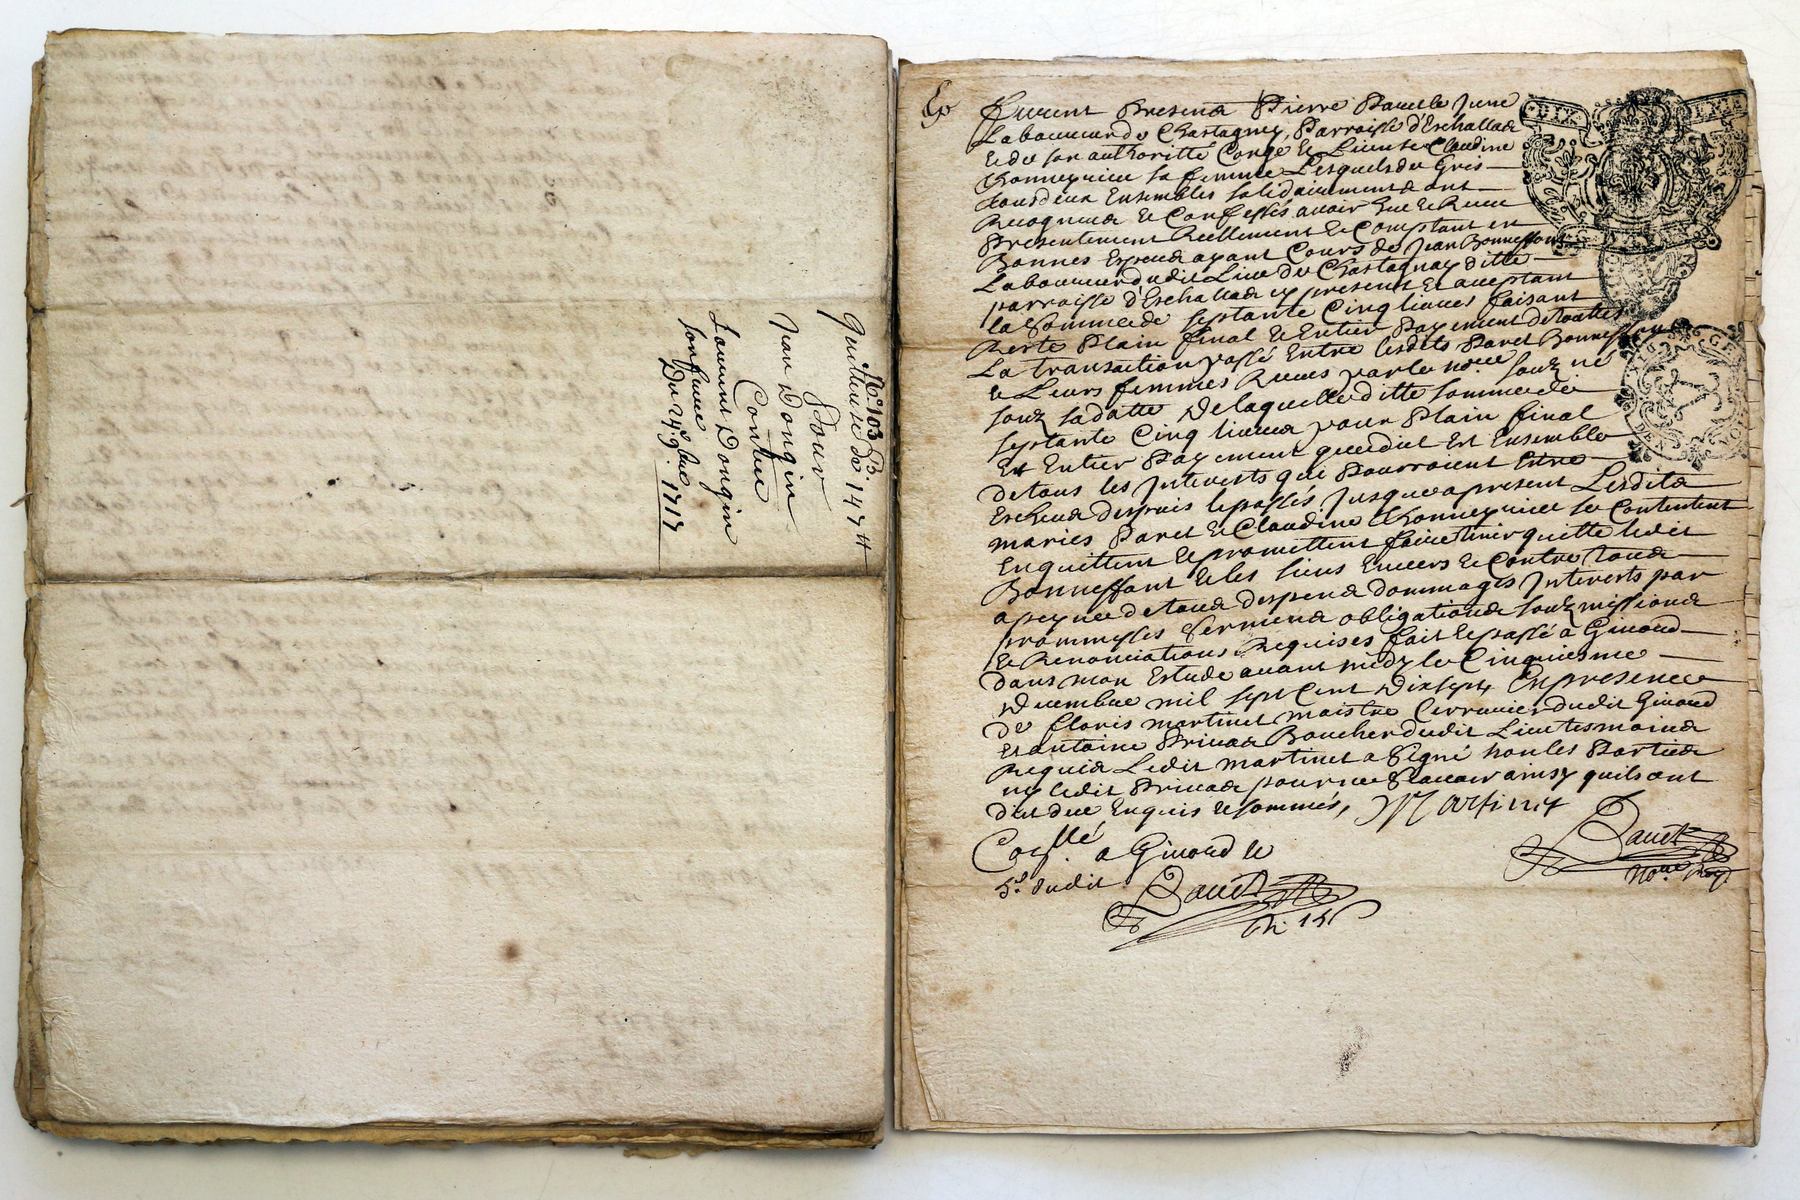 N° 103 B.
Quittance de 147 tt
Pour
Jean Dongin
Contre
Laurent Dongin
son frere
Du 24e 9bre 1717
DIX
GEN
DEN
Furent Presents Pierre Paret le Jeune
Laboureur du Chastagney, Parroisse d'Eschallas
et de son authoritté Congé et Licence Claudine
sa femme Lesquels de Gré
tous deux Ensembles solidairement ont
Recogneu et Confessés avoir heu et Receu
Presentement Reellement et Comptant en
Bonnes Especes ayant Cours de Jean Bonneffont
Laboureur dudit Lieu du Chastagnay ditte
parroisse d'Eschallas cy present et aceptant
la Somme de septante Cinq livres faisant
Reste Plain final et Entier Payement de toutte
La transaction passé Entre lesdits Paret Bonneffont
et Leurs femmes Receue par le nore. souz né
souz sa datte De laquelle ditte somme de
septante Cinq livres pour Plain final
Et Entier Payement que dict Est Ensemble
de tous les Interests qui Pourroient Estre
Escheus despuis le passés Jusques apresent Lesdits
maries Paret et Claudine se Contentent
Enquittent et promettent faire tenir quitte ledit
Bonneffont et les siens Envers et Contre tous
a peyne de tous despens dommages Interests par
prommesses sermens obligations souzmissions
et Renonciations Requises fait et passé a Givord
dans mon Estude avant midy le Cinquiesme
Decembre mil sept Cent Dix sept En presence
de floris martinet maistre Cerrurier dudit Givord
et antoine Privas Boucher dudit Lieu tesmoins
Requis Ledit martinet a signé non les Parties
ny ledit Privas pour ne sçavoir ainsy quils ont
dict de ce Enquis et sommés, Martinet
Coллé. a Givord le
5e. dudit